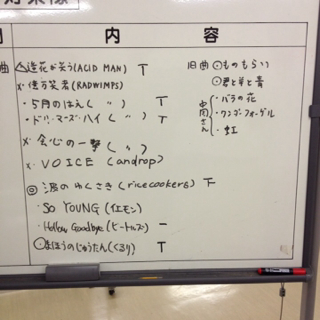 内 容
曲
△造花が笑う(ACID MAN) T
x 億万笑者(RADWIMPS)
・5月のはえ( 〃 ) T
・ドリーマーズ・ハイ( 〃 ) T
x 会心の一撃( 〃 )
x VOICE (androp)
◎ 波のゆくさき(ricecookers) T
・SO YOUNG (イエモン)
・Hello, Goodbye(ビートルズ) ー
⊙まほうのじゅうたん(くるり) T
旧曲 ⊙ものもらい
⊙君と羊と青
・バラの花
・ワンダーフォーゲル
・虹